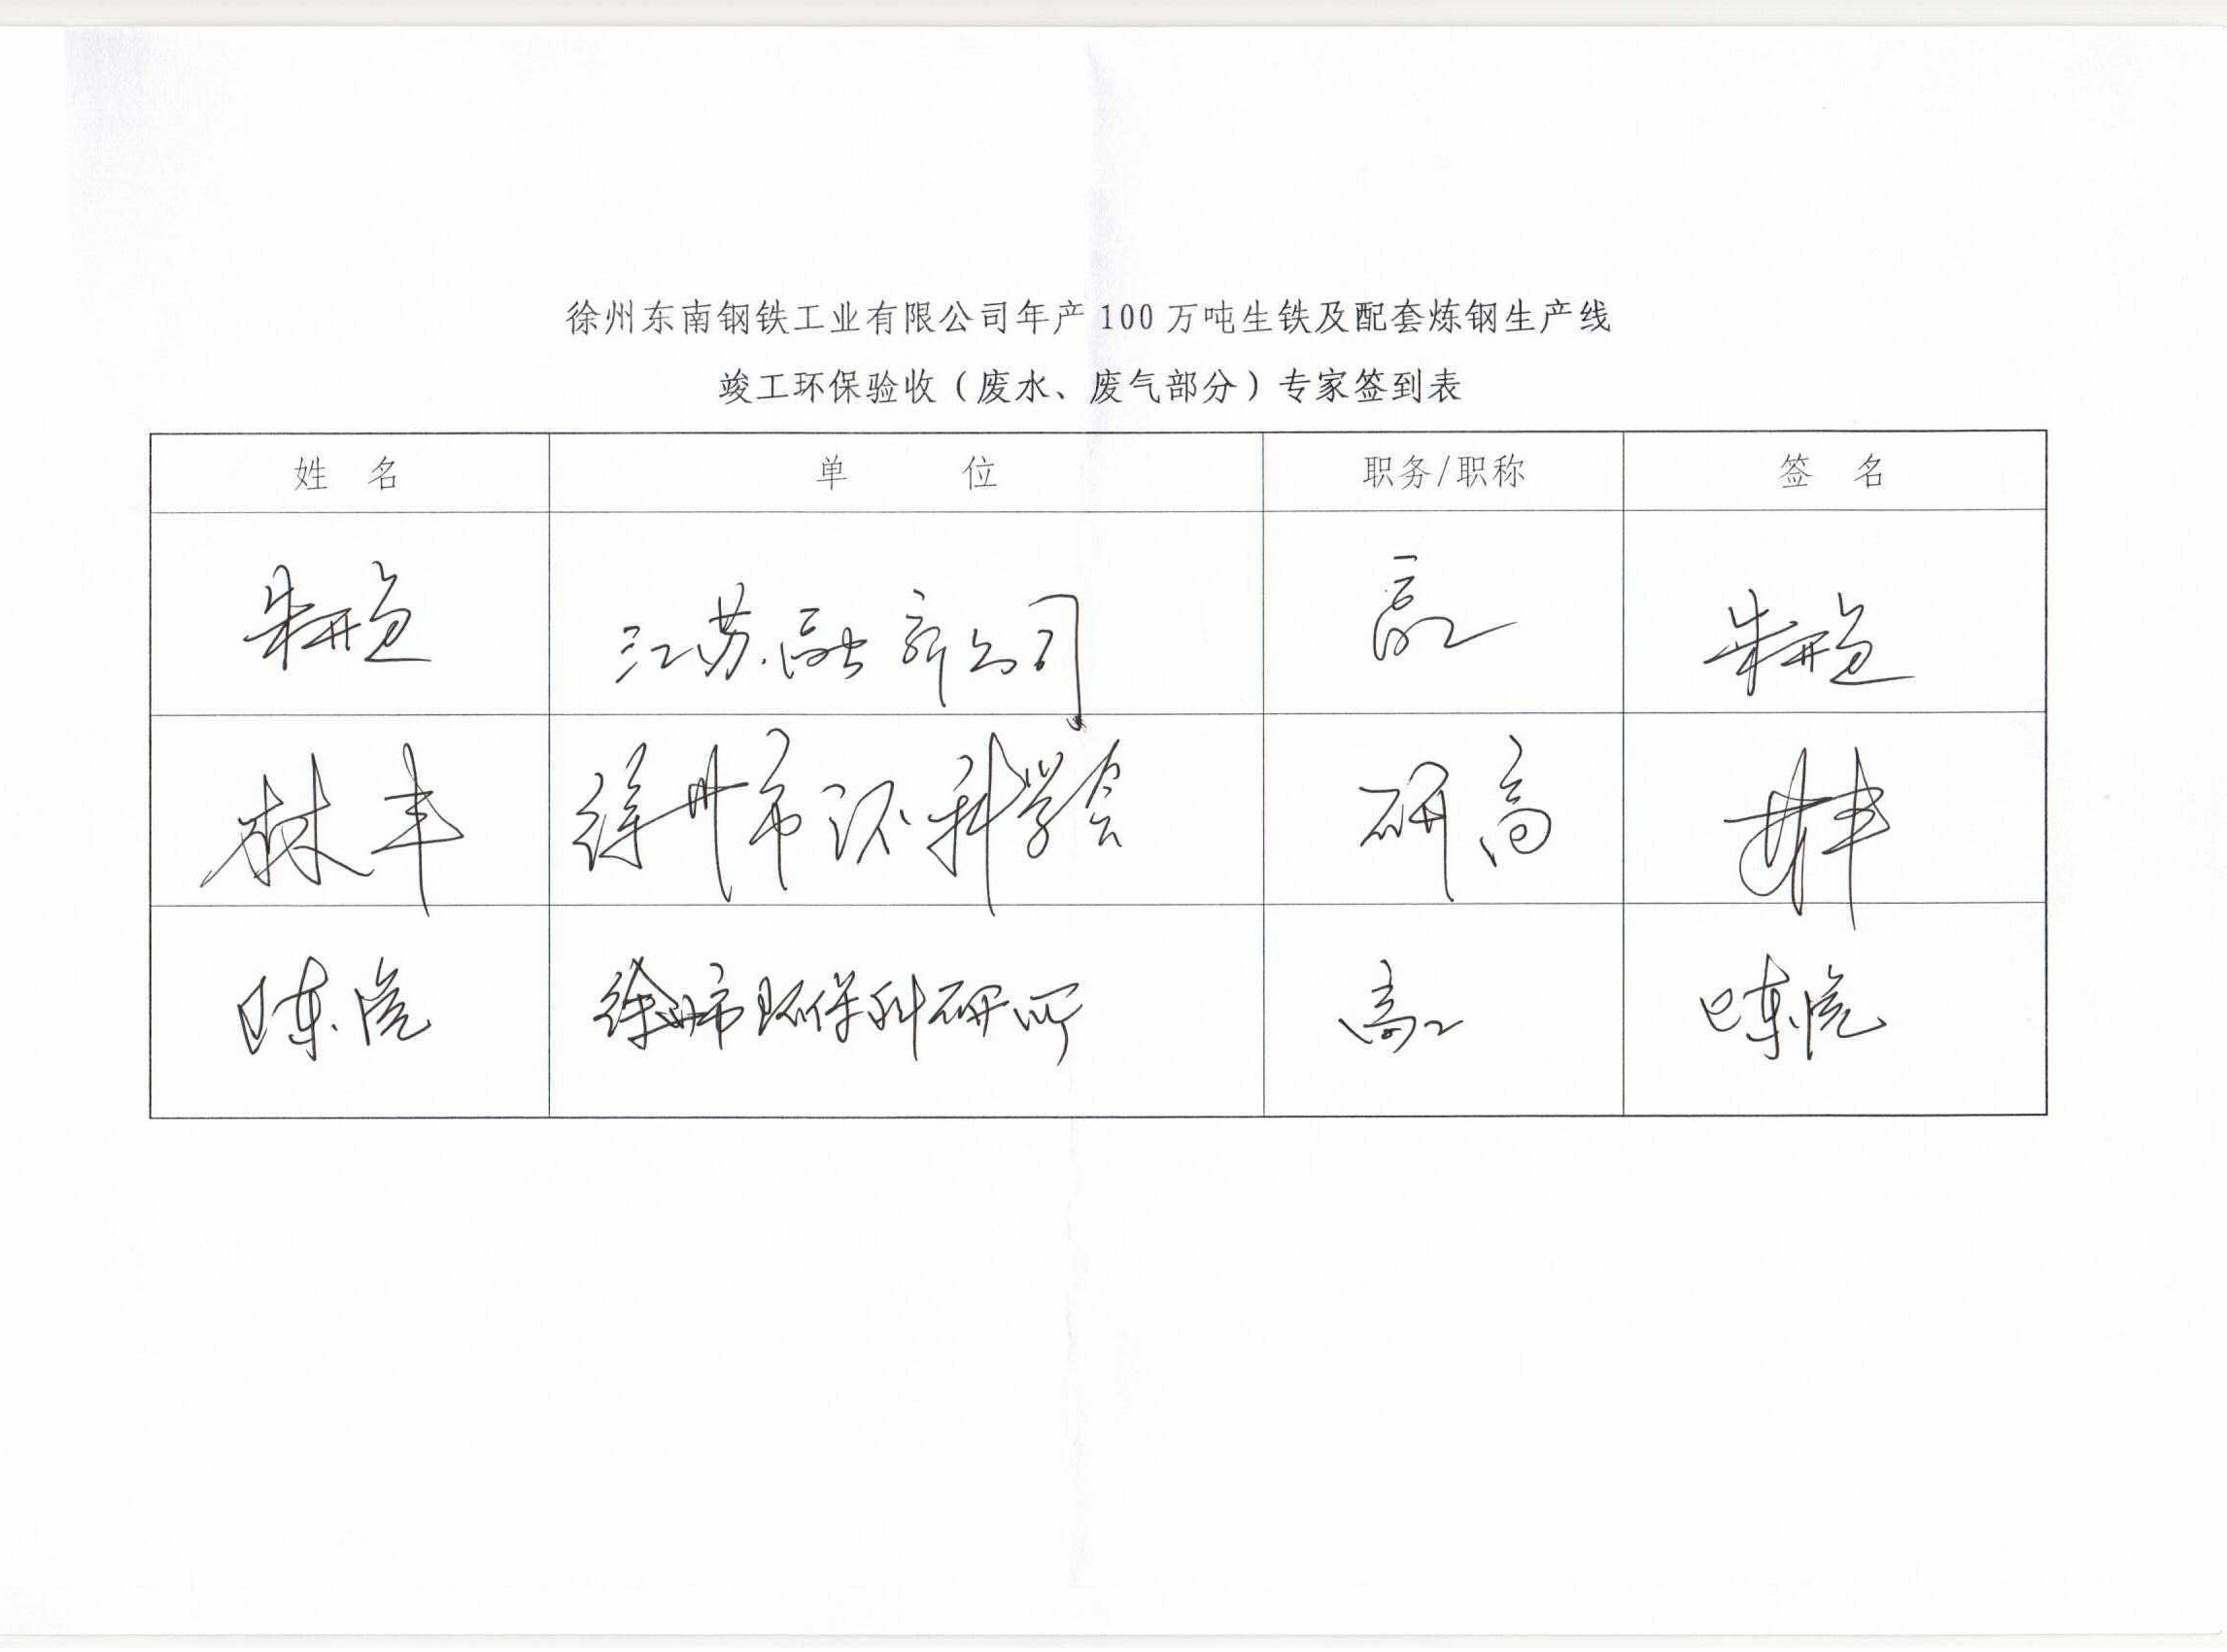 徐州东南钢铁工业有限公司年产 100 万吨生铁及配套炼钢生产线
竣工环保验收（废水、废气部分）专家签到表
姓 名 单 位 职务/职称 签 名
江苏 公司 高工
林丰 徐州市环科学会 研高 林丰
陈 徐州市环保科研所 高工 陈